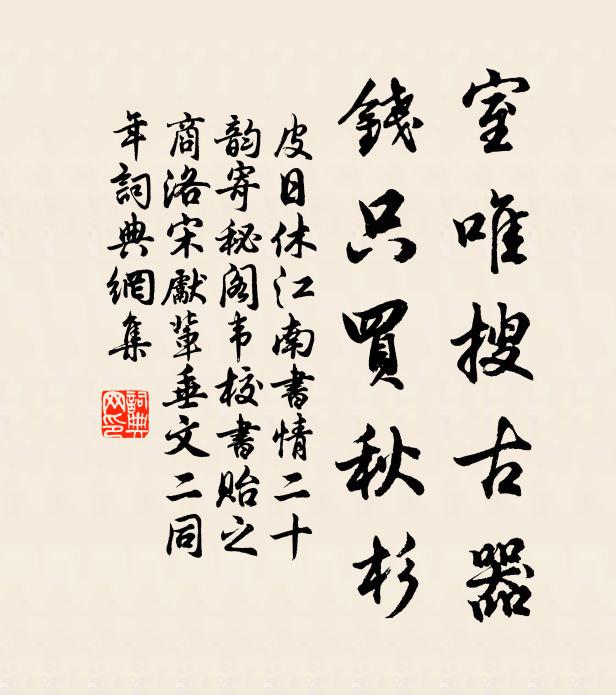 室唯搜古器
錢只買秋杉
皮日休江南書情二十
韵寄秘阁韦校書貽之
商洛宋獻輩垂文二同
年詞典網集
詞典網印